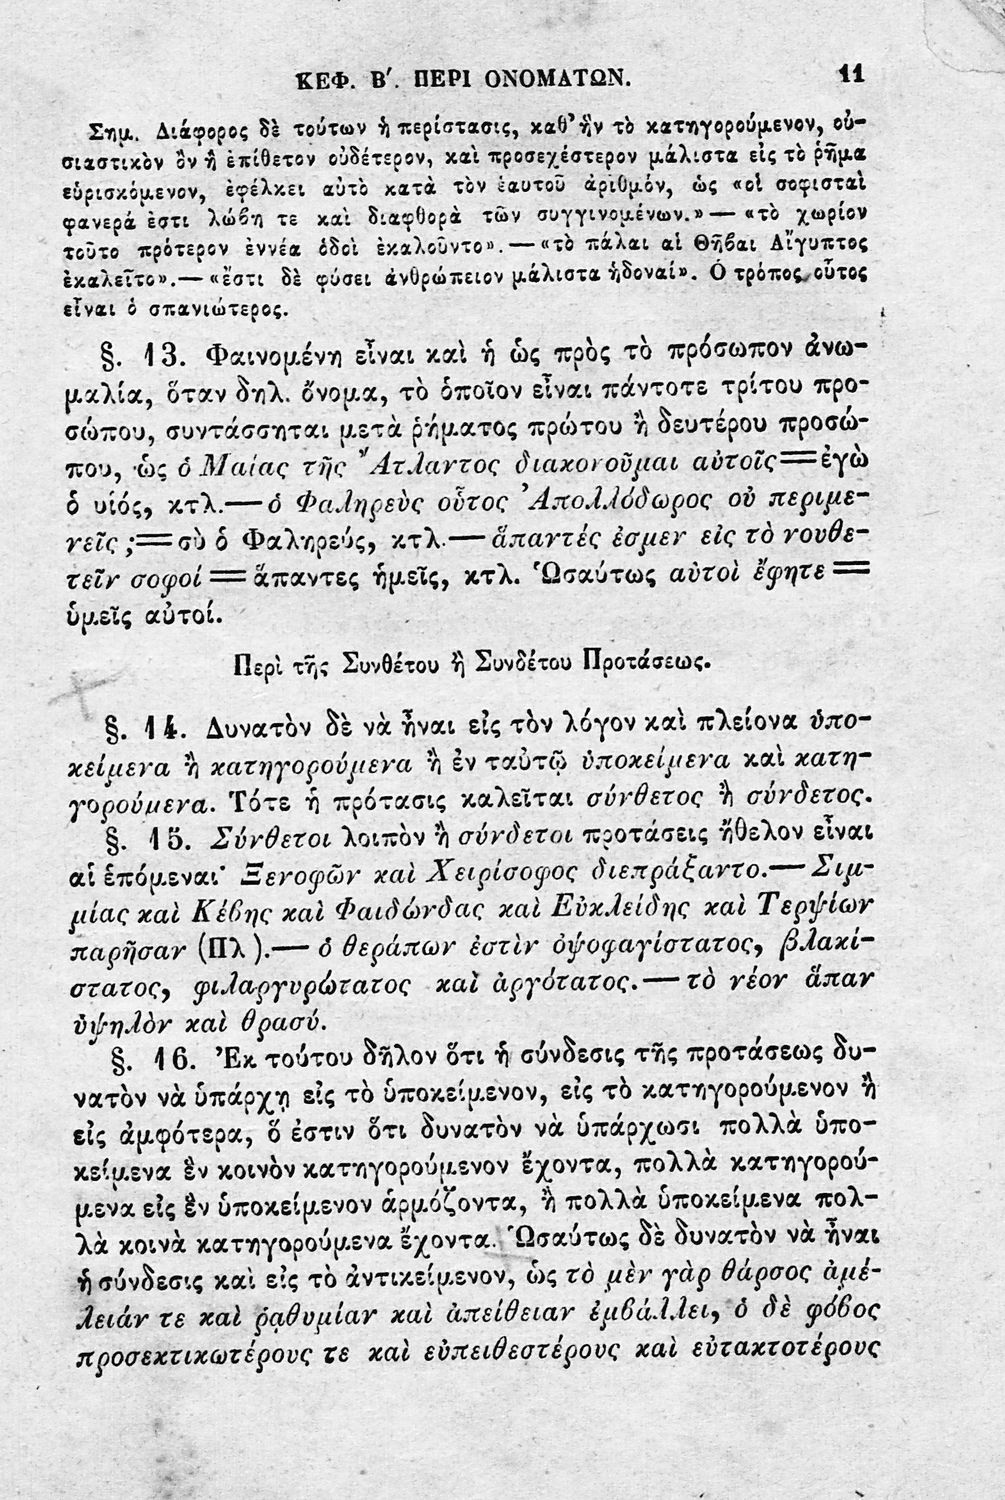 ΚΕΦ. Β΄. ΠΕΡΙ ΟΝΟΜΑΤΩΝ. 11
Σημ. Διάφορος δὲ τούτων ἡ περίστασις, καθ’ ἣν τὸ κατηγορούμενον, οὐ-
σιαστικὸν ὂν ἢ ἐπίθετον οὐδέτερον, καὶ προσεχέστερον μάλιστα εἰς τὸ ῥῆμα
εὑρισκόμενον, ἐφέλκει αὐτὸ κατὰ τὸν ἑαυτοῦ ἀριθμόν, ὡς «οἱ σοφισταὶ
φανερά ἐστι λώβη τε καὶ διαφθορὰ τῶν συγγινομένων.» — «τὸ χωρίον
τοῦτο πρότερον ἐννέα ὁδοὶ ἐκαλοῦντο». — «τὸ πάλαι αἱ Θῆβαι Αἴγυπτος
ἐκαλεῖτο». — «ἔστι δὲ φύσει ἀνθρώπειον μάλιστα ἡδοναί». Ὁ τρόπος οὗτος
εἶναι ὁ σπανιώτερος.
§. 13. Φαινομένη εἶναι καὶ ἡ ὡς πρὸς τὸ πρόσωπον ἀνω-
μαλία, ὅταν δηλ. ὄνομα, τὸ ὁποῖον εἶναι πάντοτε τρίτου προ-
σώπου, συντάσσηται μετὰ ῥήματος πρώτου ἢ δευτέρου προσώ-
που, ὡς ὁ Μαίας τῆς Ἄτλαντος διακονοῦμαι αὐτοῖς = ἐγὼ
ὁ υἱός, κτλ. — ὁ Φαληρεὺς οὗτος Ἀπολλόδωρος οὐ περιμε-
νεῖς ; = σὺ ὁ Φαληρεύς, κτλ. — ἅπαντές ἐσμεν εἰς τὸ νουθε-
τεῖν σοφοί = ἅπαντες ἡμεῖς, κτλ. Ὡσαύτως αὐτοὶ ἔφητε =
ὑμεῖς αὐτοί.
Περὶ τῆς Συνθέτου ἢ Συνδέτου Προτάσεως.
§. 14. Δυνατὸν δὲ νὰ ἦναι εἰς τὸν λόγον καὶ πλείονα ὑπο-
κείμενα ἢ κατηγορούμενα ἢ ἐν ταὐτῷ ὑποκείμενα καὶ κατη-
γορούμενα. Τότε ἡ πρότασις καλεῖται σύνθετος ἢ σύνδετος.
§. 15. Σύνθετοι λοιπὸν ἢ σύνδετοι προτάσεις ἤθελον εἶναι
αἱ ἑπόμεναι· Ξενοφῶν καὶ Χειρίσοφος διεπράξαντο. — Σιμ-
μίας καὶ Κέβης καὶ Φαιδώνδας καὶ Εὐκλείδης καὶ Τερψίων
παρῆσαν (Πλ). — ὁ θεράπων ἐστὶν ὀψοφαγίστατος, βλακί-
στατος, φιλαργυρώτατος καὶ ἀργότατος. — τὸ νέον ἅπαν
ὑψηλὸν καὶ θρασύ.
§. 16. Ἐκ τούτου δῆλον ὅτι ἡ σύνδεσις τῆς προτάσεως δυ-
νατὸν νὰ ὑπάρχῃ εἰς τὸ ὑποκείμενον, εἰς τὸ κατηγορούμενον ἢ
εἰς ἀμφότερα, ὅ ἐστιν ὅτι δυνατὸν νὰ ὑπάρχωσι πολλὰ ὑπο-
κείμενα ἓν κοινὸν κατηγορούμενον ἔχοντα, πολλὰ κατηγορού-
μενα εἰς ἓν ὑποκείμενον ἁρμόζοντα, ἢ πολλὰ ὑποκείμενα πολ-
λὰ κοινὰ κατηγορούμενα ἔχοντα. Ὡσαύτως δὲ δυνατὸν νὰ ἦναι
ἡ σύνδεσις καὶ εἰς τὸ ἀντικείμενον, ὡς τὸ μὲν γὰρ θάρσος ἀμέ-
λειάν τε καὶ ῥᾳθυμίαν καὶ ἀπείθειαν ἐμβάλλει, ὁ δὲ φόβος
προσεκτικωτέρους τε καὶ εὐπειθεστέρους καὶ εὐτακτοτέρους